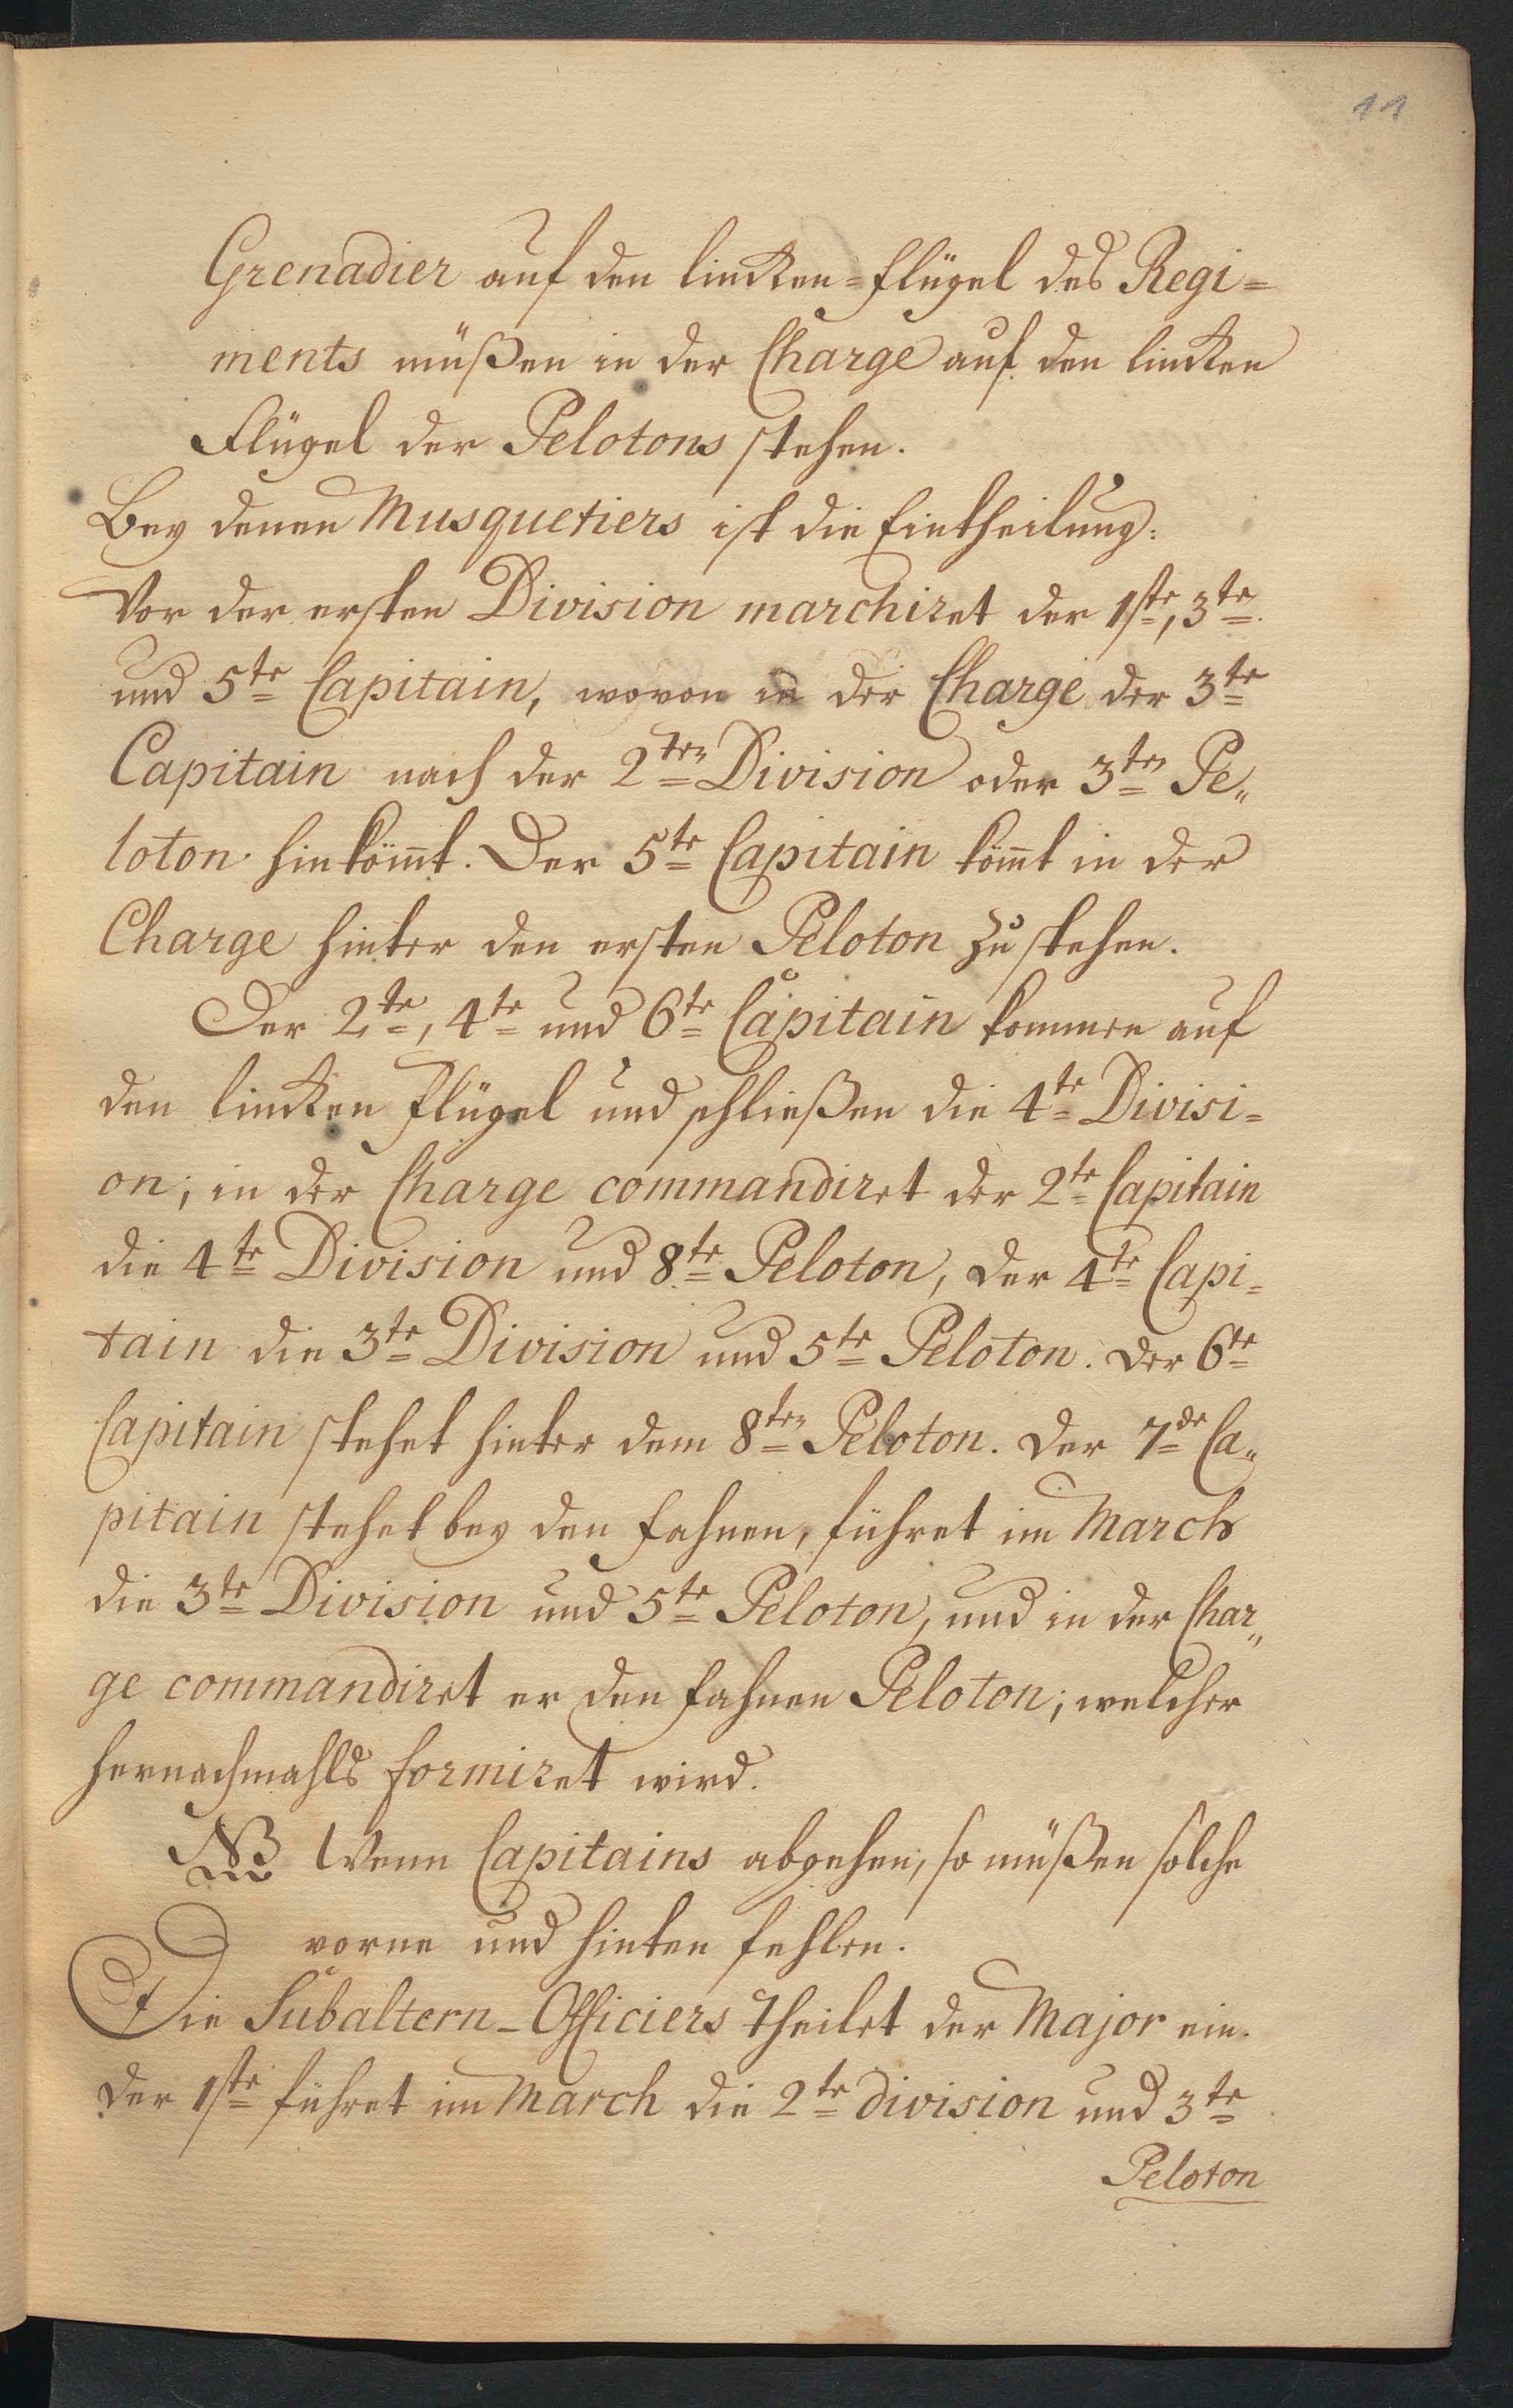 11
Grenadier auf den lincken-Flügel des Regi=
ments müßen in der Charge auf den lincken
Flügel der Pelotons stehen.
Bey denen Musquetiers ist die Eintheilung:
Vor der ersten Division marchiret der 1ste, 3te
und 5te Capitain, wovon in der Charge der 3te
Capitain nach der 2ten Division oder 3ten Pe„
loton hinkömt. Der 5te Capitain kömt in der
Charge hinter den ersten Peloton zu stehen.
Der 2te, 4te und 6te Capitain kommen auf
den lincken Flügel und schließen die 4te Divisi=
on; in der Charge commandiret der 2te Capitain
die 4te Division und 8te Peloton, der 4te Capi=
tain die 3te Division und 5te Peloton. Der 6te
Capitain stehet hinter dem 8ten Peloton. Der 7de Ca„
pitain stehet bey den Fahnen, führet im March
die 3te Division und 5te Peloton, und in der Char„
ge commandiret er den Fahnen Peloton; welcher
hernachmahls formiret wird.
NB Wenn Capitains abgehen, so müßen solche
vorne und hinten fehlen.
Die Subaltern-Officiers theilet der Major ein.
Der 1ste führet im March die 2te division und 3te
Peloton